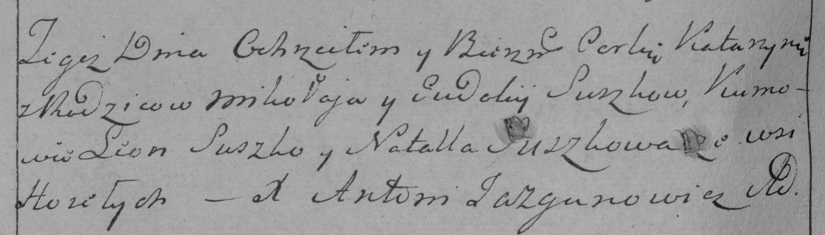 Tegoż Dnia Ochrzciłem y Bierzm Corkię Katarzynę
z Rodzicow Mikołaja y Eudokij Suszkow, Kumo-
wie Leon Suszko y Natalla Suszkowa ze wsi
Horełych — X Antoni Jazgunowicz AD.